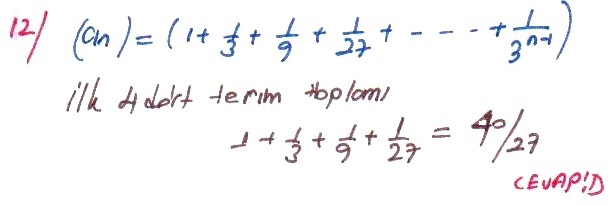 12/ (an) = (1 + 1/3 + 1/9 + 1/27 + - - - + 1/3^(n-1))
ilk 4 dört terim toplamı
1 + 1/3 + 1/9 + 1/27 = 40/27
CEVAP!D